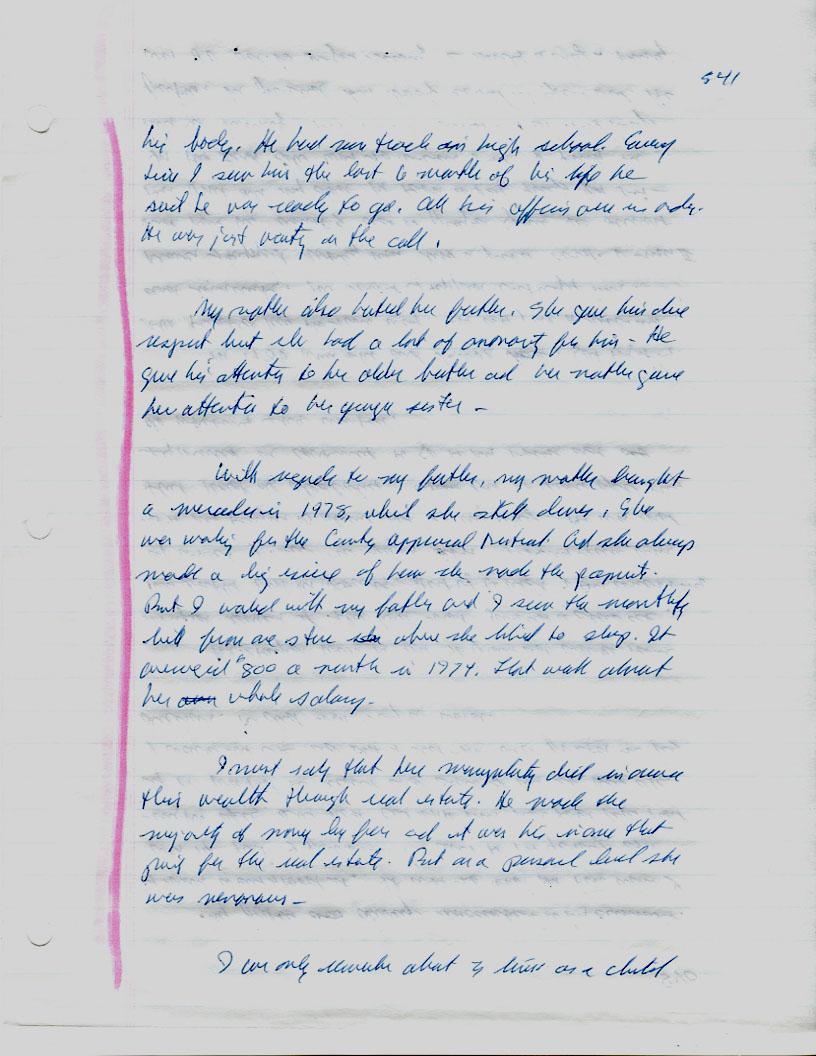 541
his body. He had run track in high school. Every
time I saw him the last 6 months of his life he
said he was ready to go. All his affairs were in order.
He was just waiting on the call.
My mother also hated her father. She gave him due
respect but she had a lot of animosity for him - He
gave his attention to her older brother and her mother gave
her attention to her younger sister -
With regards to my father, my mother bought
a mercedes in 1978, which she still drives. She
was working for the County Appraisal District. And she always
made a big issue of how she made the payments.
But I worked with my father and I saw the monthly
bill from one store where she liked to shop. It
averaged $800 a month in 1974. That was almost
her whole salary.
I must say that her manipulating did increase
their wealth through real estate. He made the
majority of money by far and it was his income that
paid for the real estate. But on a personal level she
was
I can only remember about 3 times as a child